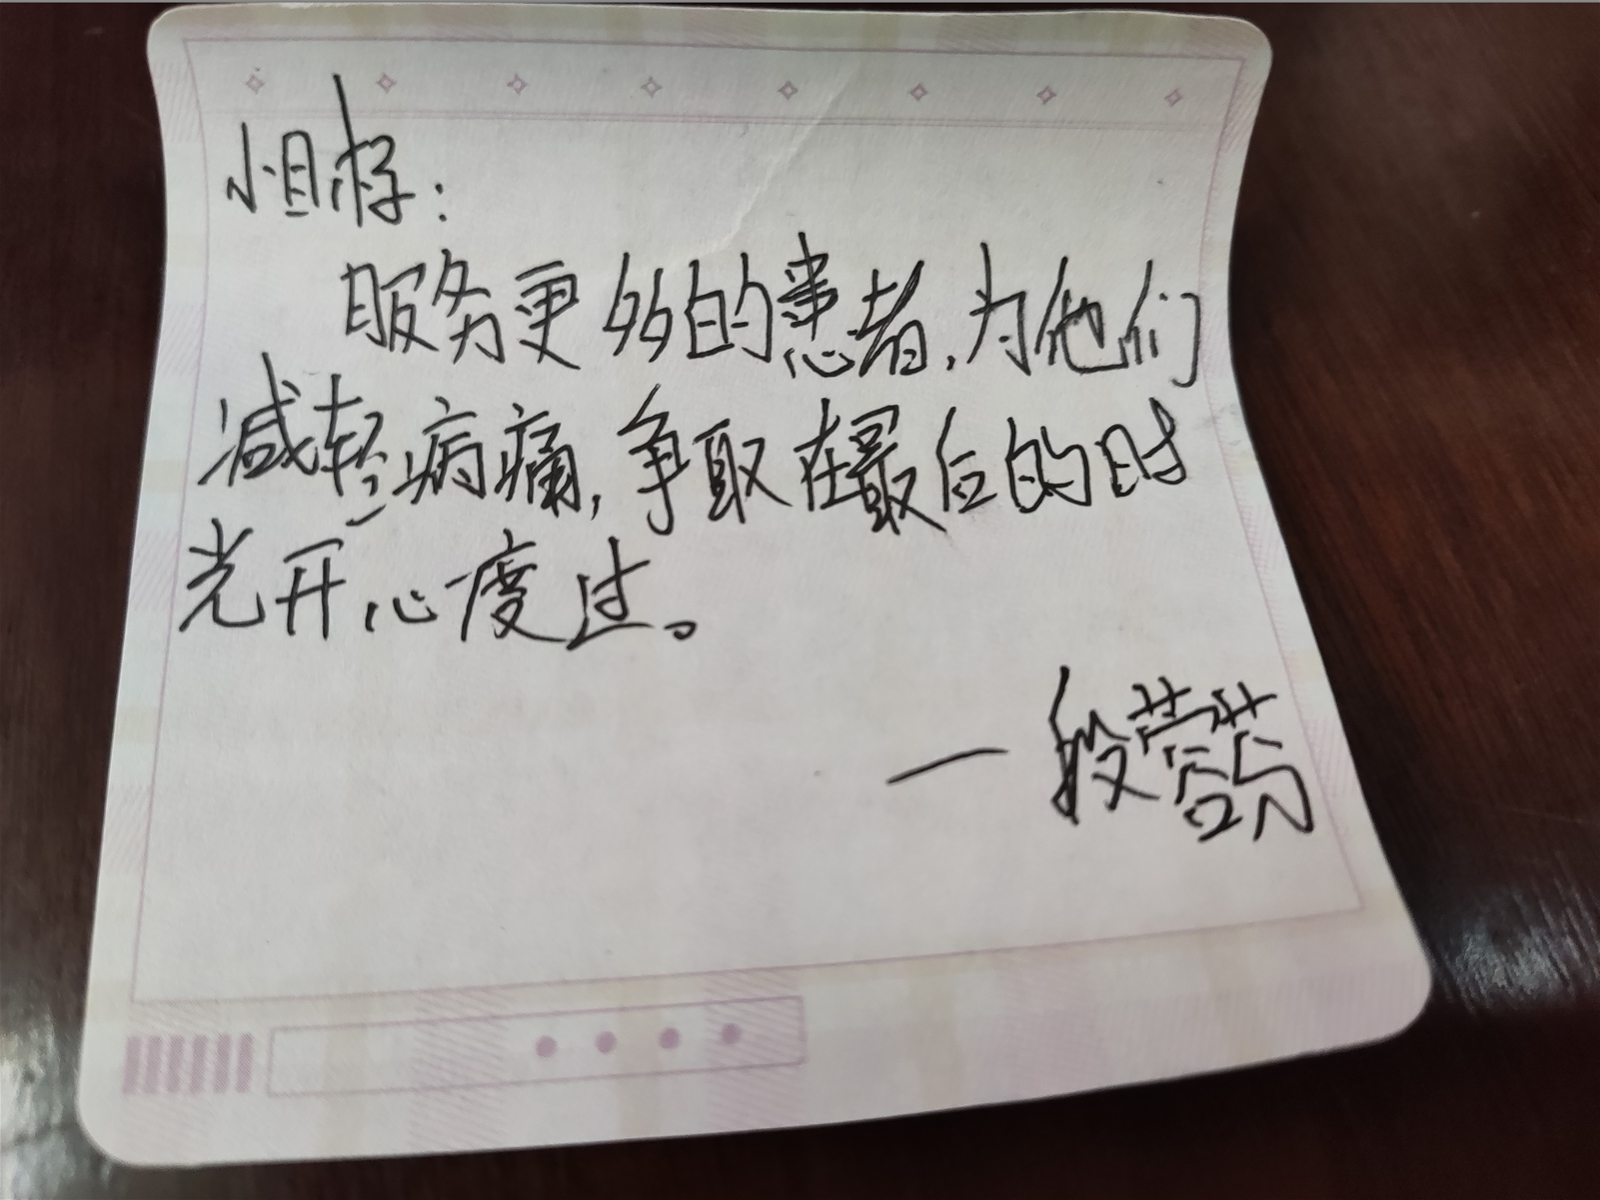 服务更多的患者,为他们
减轻病痛,争取在最后的时
光开心度过。
一段莹莹